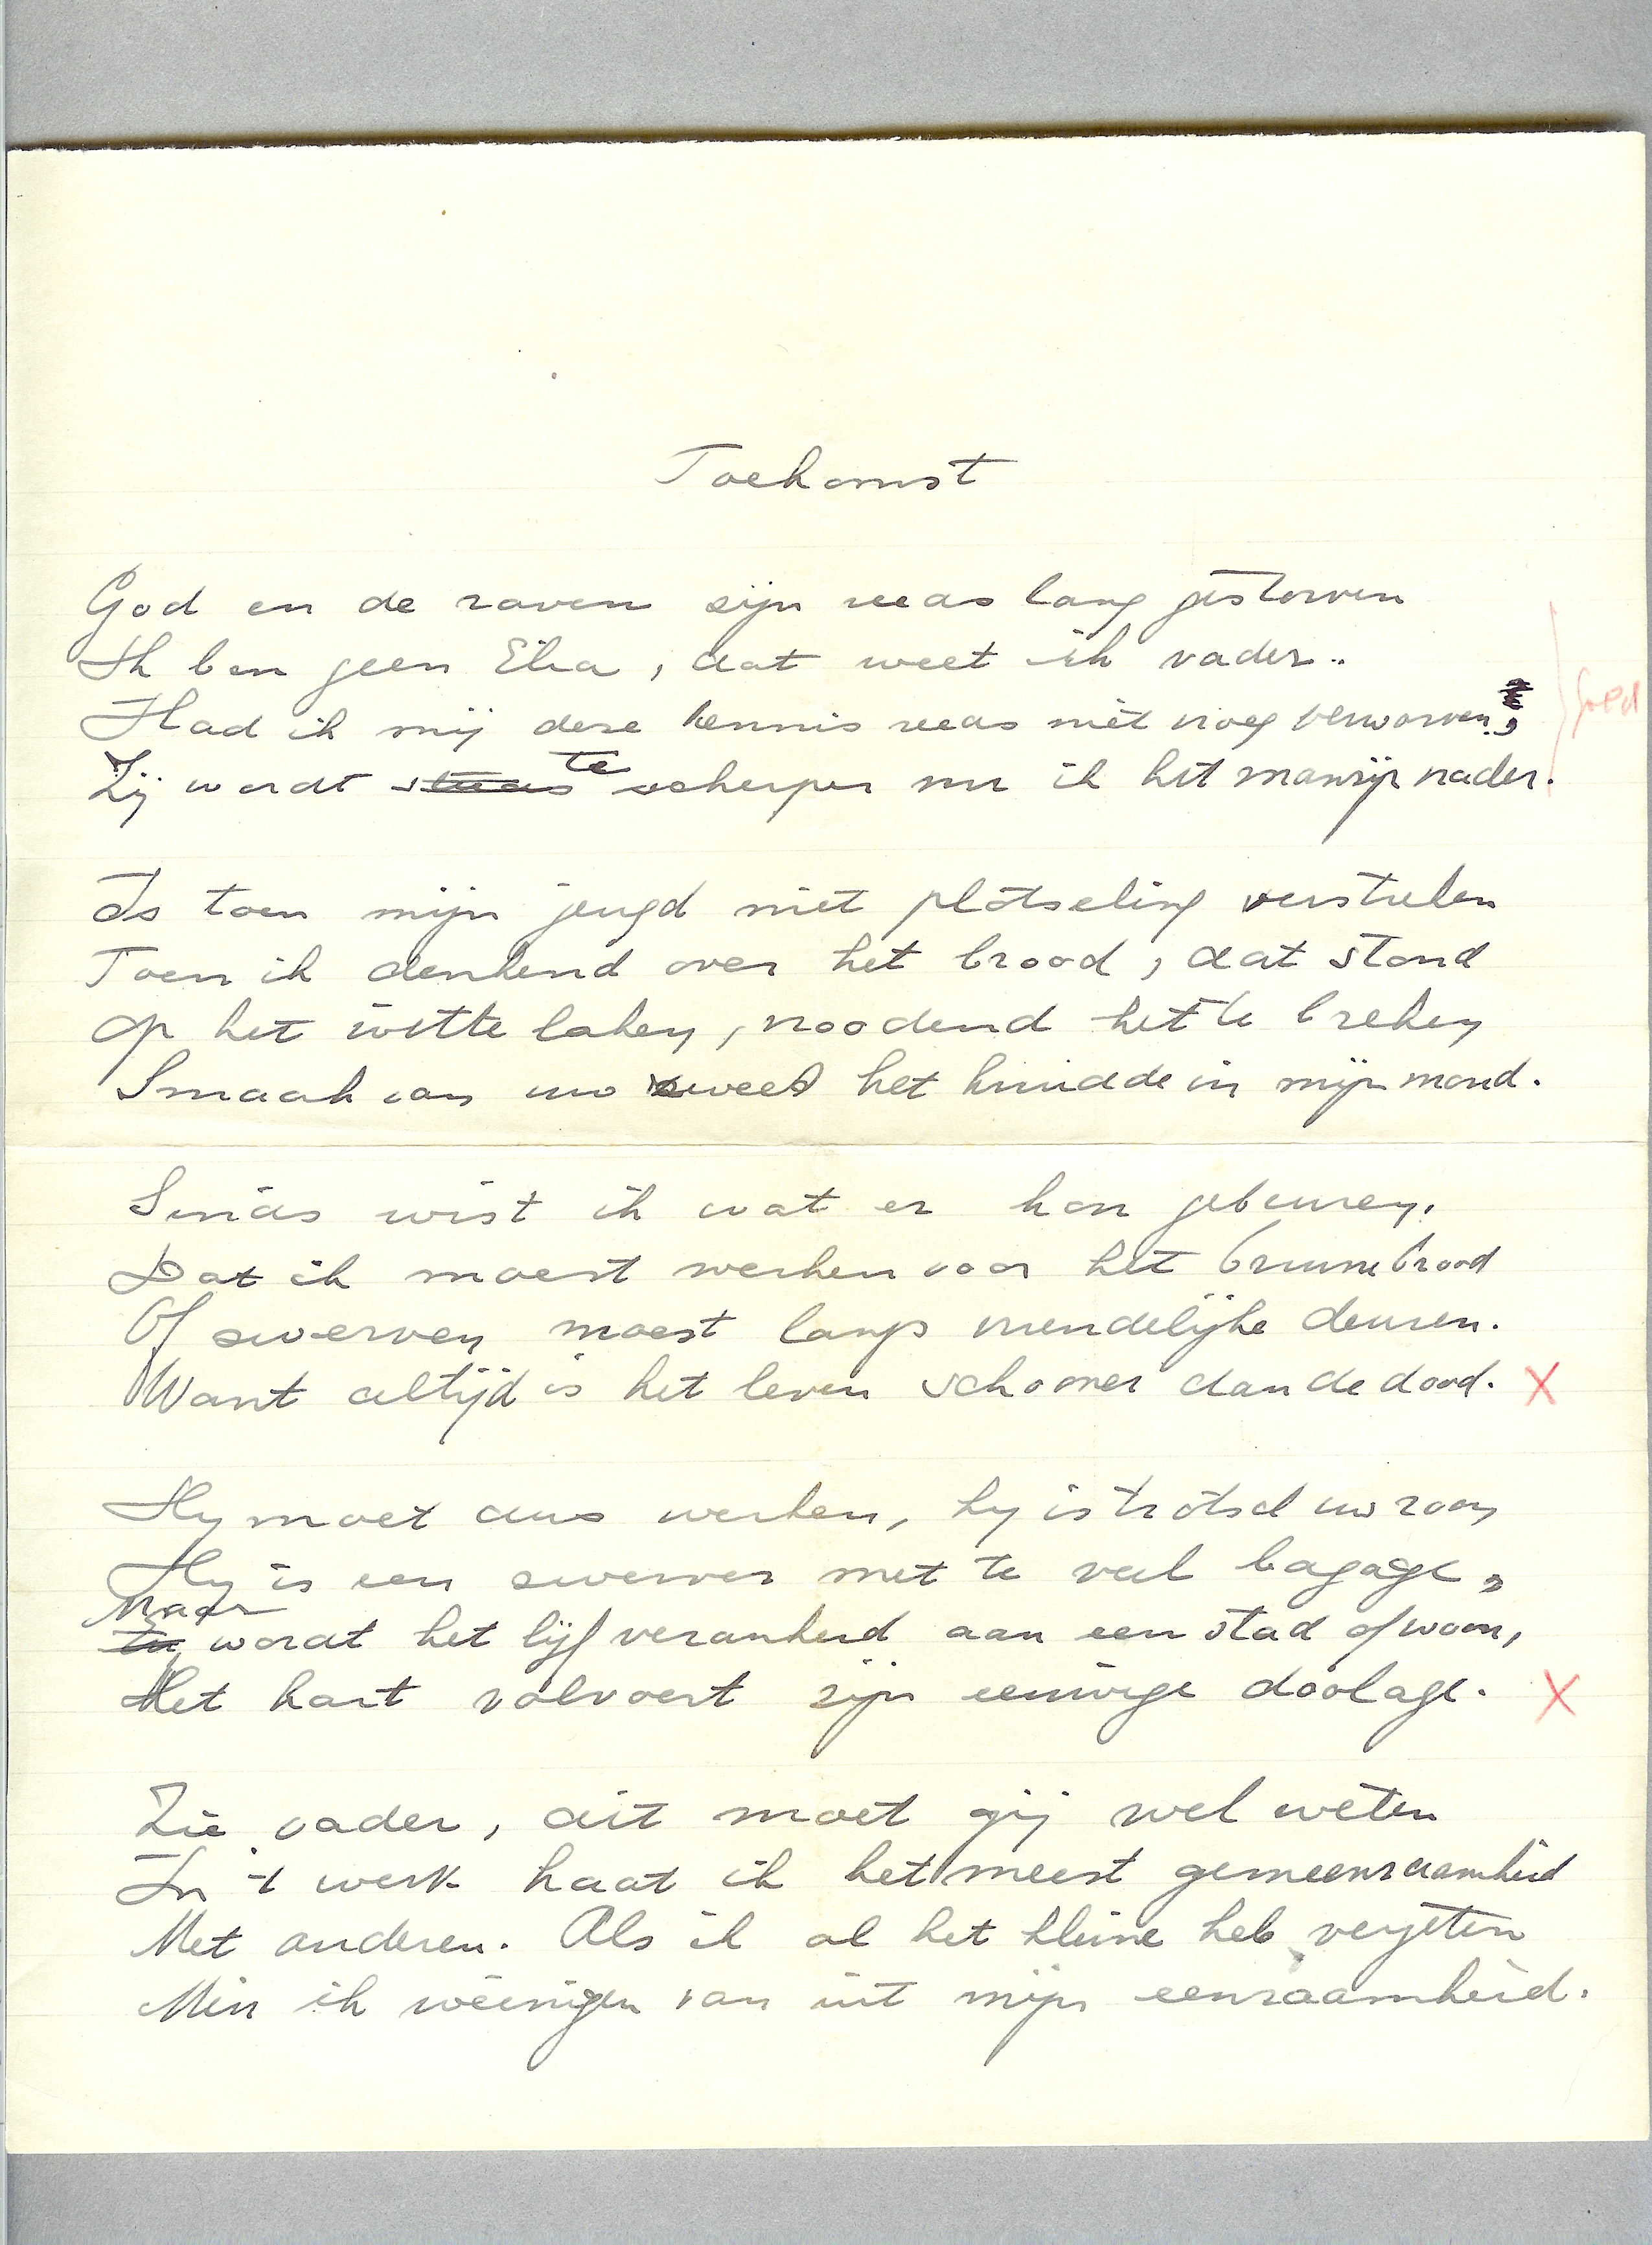 Toekomst
God en de raven zijn reeds lang gestorven
Ik ben geen Elia, dat weet ik vader..
Had ik mij deze kennis reeds niet vroeg verworven,
goed
Zij wordt steeds te scherper nu ik het manzijn nader.
Is toen mijn jeugd niet plotseling verstreken
Toen ik denkend over het brood, dat stond
Op het witte laken, noodend het te breken
Smaak van uw zweet het kruidde in mijn mond.
Sinds wist ik wat er kon gebeuren.
Dat ik moest werken voor het bruine brood
Of zwerven moest langs vriendelijke deuren.
Want altijd is het leven schooner dan de dood. X
Hy moet dus werken, hy is trotsch uw zoon
Hy is een zwerver met te veel bagage,
Maar
wordt het lijf verankerd aan een stad of woon,
Het hart volvoert zijn eeuwige doolage. X
Zie vader, dit moet gij wel weten
In 't werk haat ik het meest gemeenzaamheid
Met anderen. Als ik al het kleine heb vergeten
Min ik weinigen van uit mijn eenzaamheid.